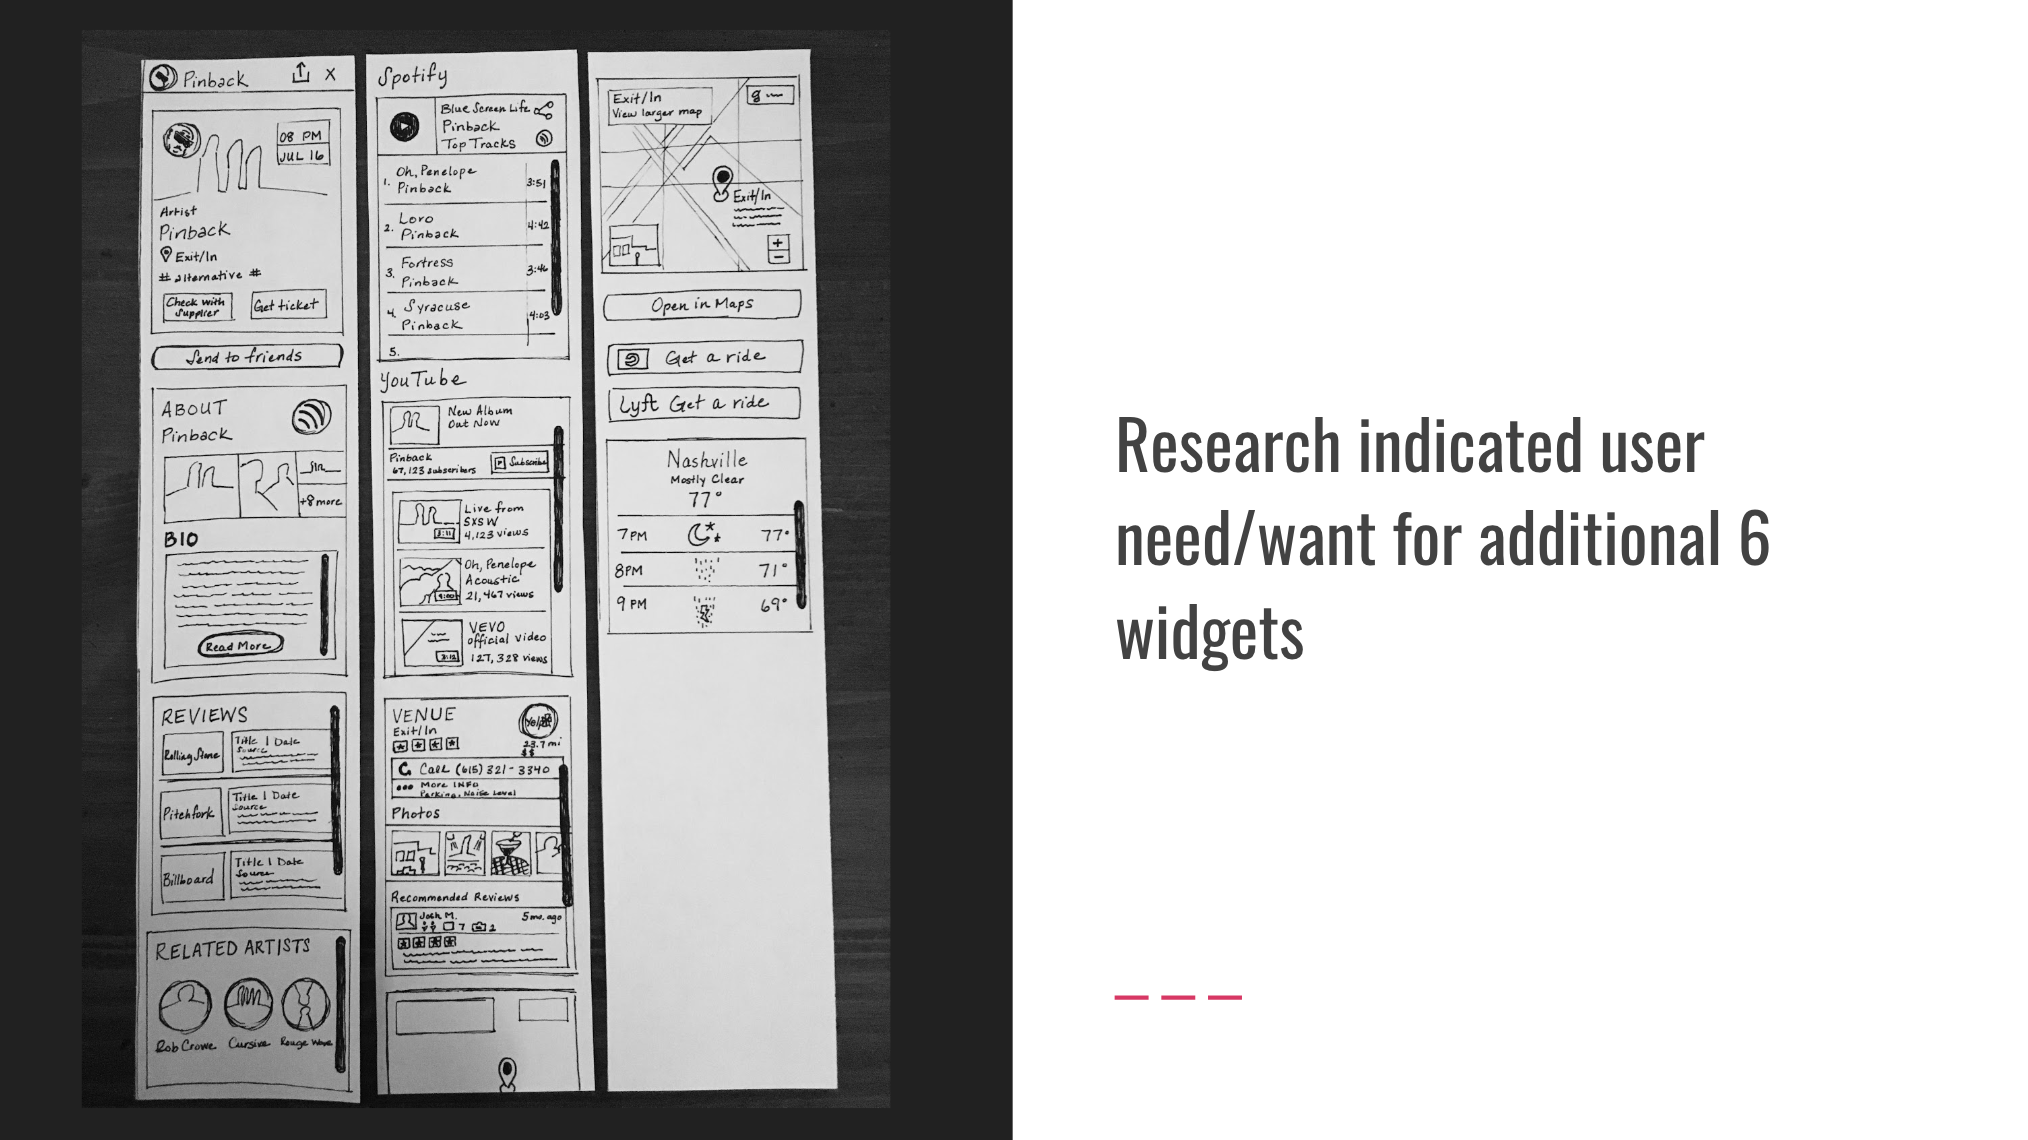 Pinback X
08 PM
JUL 16
Artist
Pinback
Exit/In
# alternative #
Check with Supplier
Get ticket
Send to friends
ABOUT
Pinback
+8 more
BIO
Read More
REVIEWS
Rolling Stone
Title | Date
Source
Pitchfork
Title | Date
Source
Billboard
Title | Date
Source
RELATED ARTISTS
Rob Crowe Cursive Rouge Wave
Spotify
Blue Screen Life
Pinback
Top Tracks
1. Oh, Penelope
Pinback 3:51
2. Loro
Pinback 4:42
3. Fortress
Pinback 3:46
4. Syracuse
Pinback 4:03
5.
YouTube
New Album
Out Now
Pinback
67,123 subscribers
Subscribe
Live from
SXSW
4,123 views
3:11
Oh, Penelope
Acoustic
21,467 views
VEVO
official video
127,328 views
3:12
VENUE
Exit/In
Yelp
23.7 mi
$$
Call (615) 321-3340
More INFO
Parking, Noise Level
Photos
Recommended Reviews
Josh M. 5 mo. ago
7 2
Exit/In
View larger map
Exit/In
+
−
Open in Maps
Get a ride
Lyft Get a ride
Nashville
Mostly Clear
77°
7PM 77°
8PM 71°
9PM 69°
Research indicated user
need/want for additional 6
widgets